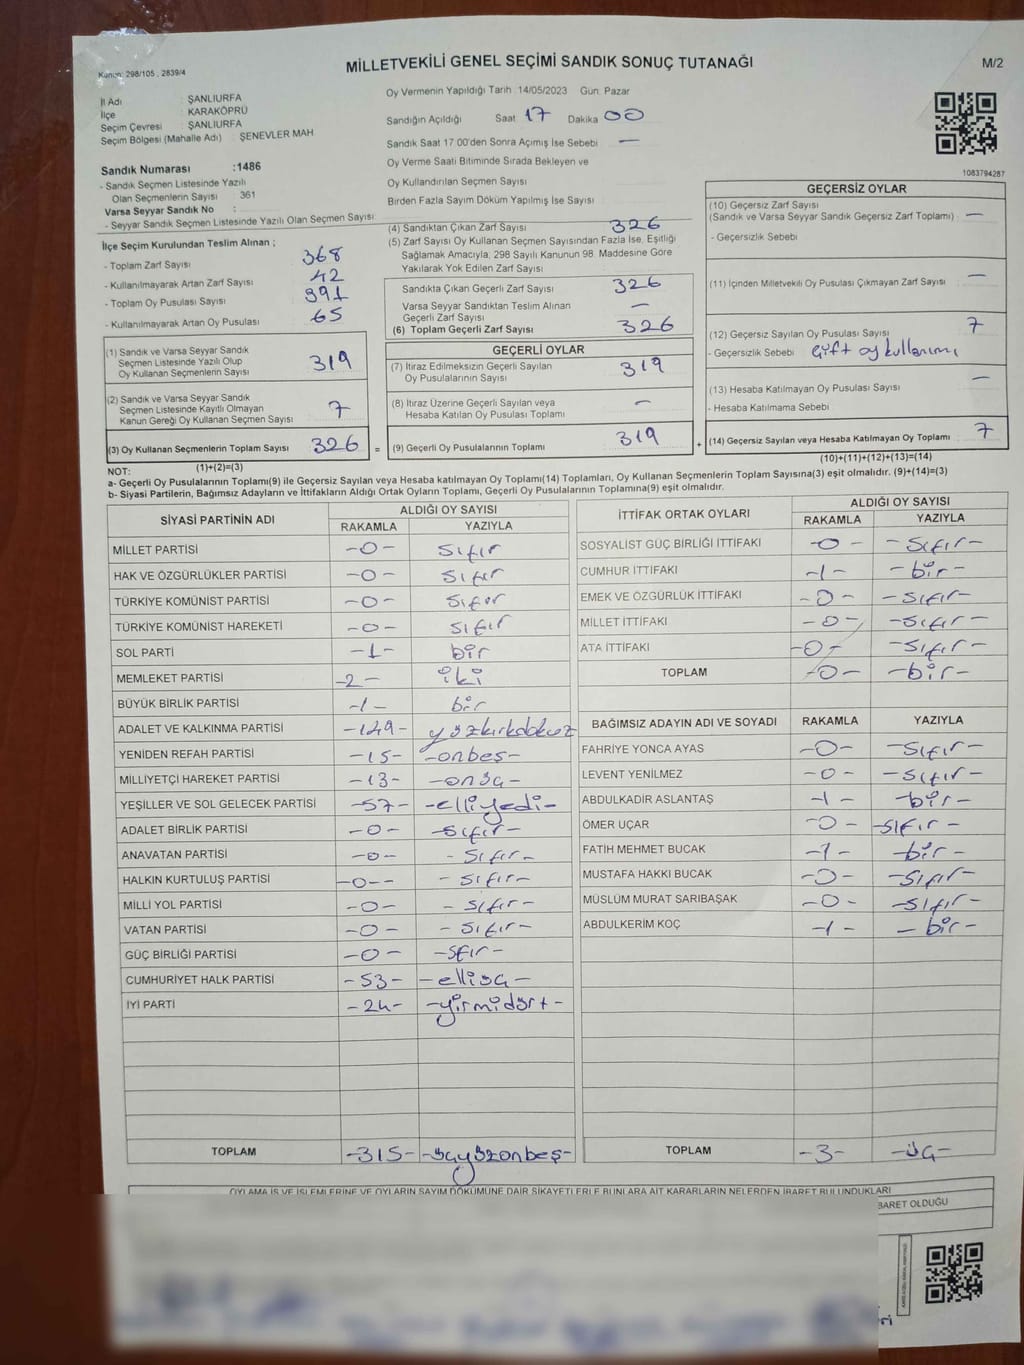 Kanun: 298/105 , 2839/4
MİLLETVEKİLİ GENEL SEÇİMİ SANDIK SONUÇ TUTANAĞI
M/2
İl Adı : ŞANLIURFA
İlçe : KARAKÖPRÜ
Seçim Çevresi : ŞANLIURFA
Seçim Bölgesi (Mahalle Adı) : ŞENEVLER MAH
Sandık Numarası :1486
- Sandık Seçmen Listesinde Yazılı
Olan Seçmenlerin Sayısı : 361
Varsa Seyyar Sandık No :
- Seyyar Sandık Seçmen Listesinde Yazılı Olan Seçmen Sayısı:
Oy Vermenin Yapıldığı Tarih : 14/05/2023 Gün: Pazar
Sandığın Açıldığı Saat 17 Dakika 00
Sandık Saat 17:00'den Sonra Açımış İse Sebebi —
Oy Verme Saati Bitiminde Sırada Bekleyen ve
Oy Kullandırılan Seçmen Sayısı
Birden Fazla Sayım Döküm Yapılmış İse Sayısı
1083794287
İlçe Seçim Kurulundan Teslim Alınan ;
- Toplam Zarf Sayısı 368
- Kullanılmayarak Artan Zarf Sayısı 42
- Toplam Oy Pusulası Sayısı 391
- Kullanılmayarak Artan Oy Pusulası 65
(1) Sandık ve Varsa Seyyar Sandık
Seçmen Listesinde Yazılı Olup
Oy Kullanan Seçmenlerin Sayısı 319
(2) Sandık ve Varsa Seyyar Sandık
Seçmen Listesinde Kayıtlı Olmayan
Kanun Gereği Oy Kullanan Seçmen Sayısı 7
(3) Oy Kullanan Seçmenlerin Toplam Sayısı 326 =
(1)+(2)=(3)
(4) Sandıktan Çıkan Zarf Sayısı 326
(5) Zarf Sayısı Oy Kullanan Seçmen Sayısından Fazla İse, Eşitliği
Sağlamak Amacıyla, 298 Sayılı Kanunun 98. Maddesine Göre
Yakılarak Yok Edilen Zarf Sayısı
Sandıkta Çıkan Geçerli Zarf Sayısı 326
Varsa Seyyar Sandıktan Teslim Alınan
Geçerli Zarf Sayısı —
(6) Toplam Geçerli Zarf Sayısı 326
GEÇERLİ OYLAR
(7) İtiraz Edilmeksizin Geçerli Sayılan
Oy Pusulalarının Sayısı 319
(8) İtiraz Üzerine Geçerli Sayılan veya
Hesaba Katılan Oy Pusulası Toplamı —
(9) Geçerli Oy Pusulalarının Toplamı 319 +
GEÇERSİZ OYLAR
(10) Geçersiz Zarf Sayısı
(Sandık ve Varsa Seyyar Sandık Geçersiz Zarf Toplamı) —
- Geçersizlik Sebebi
(11) İçinden Milletvekili Oy Pusulası Çıkmayan Zarf Sayısı —
(12) Geçersiz Sayılan Oy Pusulası Sayısı 7
- Geçersizlik Sebebi Çift oy kullanımı
(13) Hesaba Katılmayan Oy Pusulası Sayısı —
- Hesaba Katılmama Sebebi
(14) Geçersiz Sayılan veya Hesaba Katılmayan Oy Toplamı 7
(10)+(11)+(12)+(13)=(14)
NOT:
a- Geçerli Oy Pusulalarının Toplamı(9) ile Geçersiz Sayılan veya Hesaba katılmayan Oy Toplamı(14) Toplamları, Oy Kullanan Seçmenlerin Toplam Sayısına(3) eşit olmalıdır. (9)+(14)=(3)
b- Siyasi Partilerin, Bağımsız Adayların ve İttifakların Aldığı Ortak Oyların Toplamı, Geçerli Oy Pusulalarının Toplamına(9) eşit olmalıdır.
SİYASİ PARTİNİN ADI ALDIĞI OY SAYISI
RAKAMLA YAZIYLA
MİLLET PARTİSİ -0- sıfır
HAK VE ÖZGÜRLÜKLER PARTİSİ -0- sıfır
TÜRKİYE KOMÜNİST PARTİSİ -0- sıfır
TÜRKİYE KOMÜNİST HAREKETİ -0- sıfır
SOL PARTİ -1- bir
MEMLEKET PARTİSİ -2- iki
BÜYÜK BİRLİK PARTİSİ -1- bir
ADALET VE KALKINMA PARTİSİ -149- yüzkırkdokuz
YENİDEN REFAH PARTİSİ -15- -onbeş-
MİLLİYETÇİ HAREKET PARTİSİ -13- -onüç-
YEŞİLLER VE SOL GELECEK PARTİSİ -57- -elliyedi-
ADALET BİRLİK PARTİSİ -0- -sıfır-
ANAVATAN PARTİSİ -0- -sıfır-
HALKIN KURTULUŞ PARTİSİ -0-- -sıfır-
MİLLİ YOL PARTİSİ -0- -sıfır-
VATAN PARTİSİ -0- -sıfır-
GÜÇ BİRLİĞİ PARTİSİ -0- -sfır-
CUMHURİYET HALK PARTİSİ -53- -elliüç-
İYİ PARTİ -24- -yirmidört-
TOPLAM -315- -üçyüzonbeş-
İTTİFAK ORTAK OYLARI ALDIĞI OY SAYISI
RAKAMLA YAZIYLA
SOSYALİST GÜÇ BİRLİĞİ İTTİFAKI -0- -sıfır-
CUMHUR İTTİFAKI -1- -bir-
EMEK VE ÖZGÜRLÜK İTTİFAKI -0- -sıfır-
MİLLET İTTİFAKI -0- -sıfır-
ATA İTTİFAKI -0- -sıfır-
TOPLAM -0- -bir-
BAĞIMSIZ ADAYIN ADI VE SOYADI RAKAMLA YAZIYLA
FAHRİYE YONCA AYAS -0- -sıfır-
LEVENT YENİLMEZ -0- -sıfır-
ABDULKADİR ASLANTAŞ -1- -bir-
ÖMER UÇAR -0- -sıfır-
FATİH MEHMET BUCAK -1- -bir-
MUSTAFA HAKKI BUCAK -0- -sıfır-
MÜSLÜM MURAT SARIBAŞAK -0- -sıfır-
ABDULKERİM KOÇ -1- -bir-
TOPLAM -3- -üç-
OYLAMA İŞ VE İŞLEMLERİNE VE OYLARIN SAYIM DÖKÜMÜNE DAİR ŞİKAYETLERLE BUNLARA AİT KARARLARIN NELERDEN İBARET BULUNDUKLARI
BARET OLDUĞU